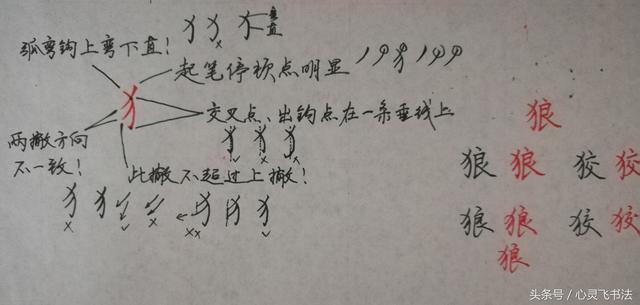 弧弯钩上弯下直！
犭犭犭
垂直
起笔停顿点明显
犭
交叉点、出钩点在一条垂线上
两撇方向
不一致！
此撇不超过上撇！
狼
狼 狼 狡 狡
狼 狼 狡 狡
狼
头条号／心灵飞书法